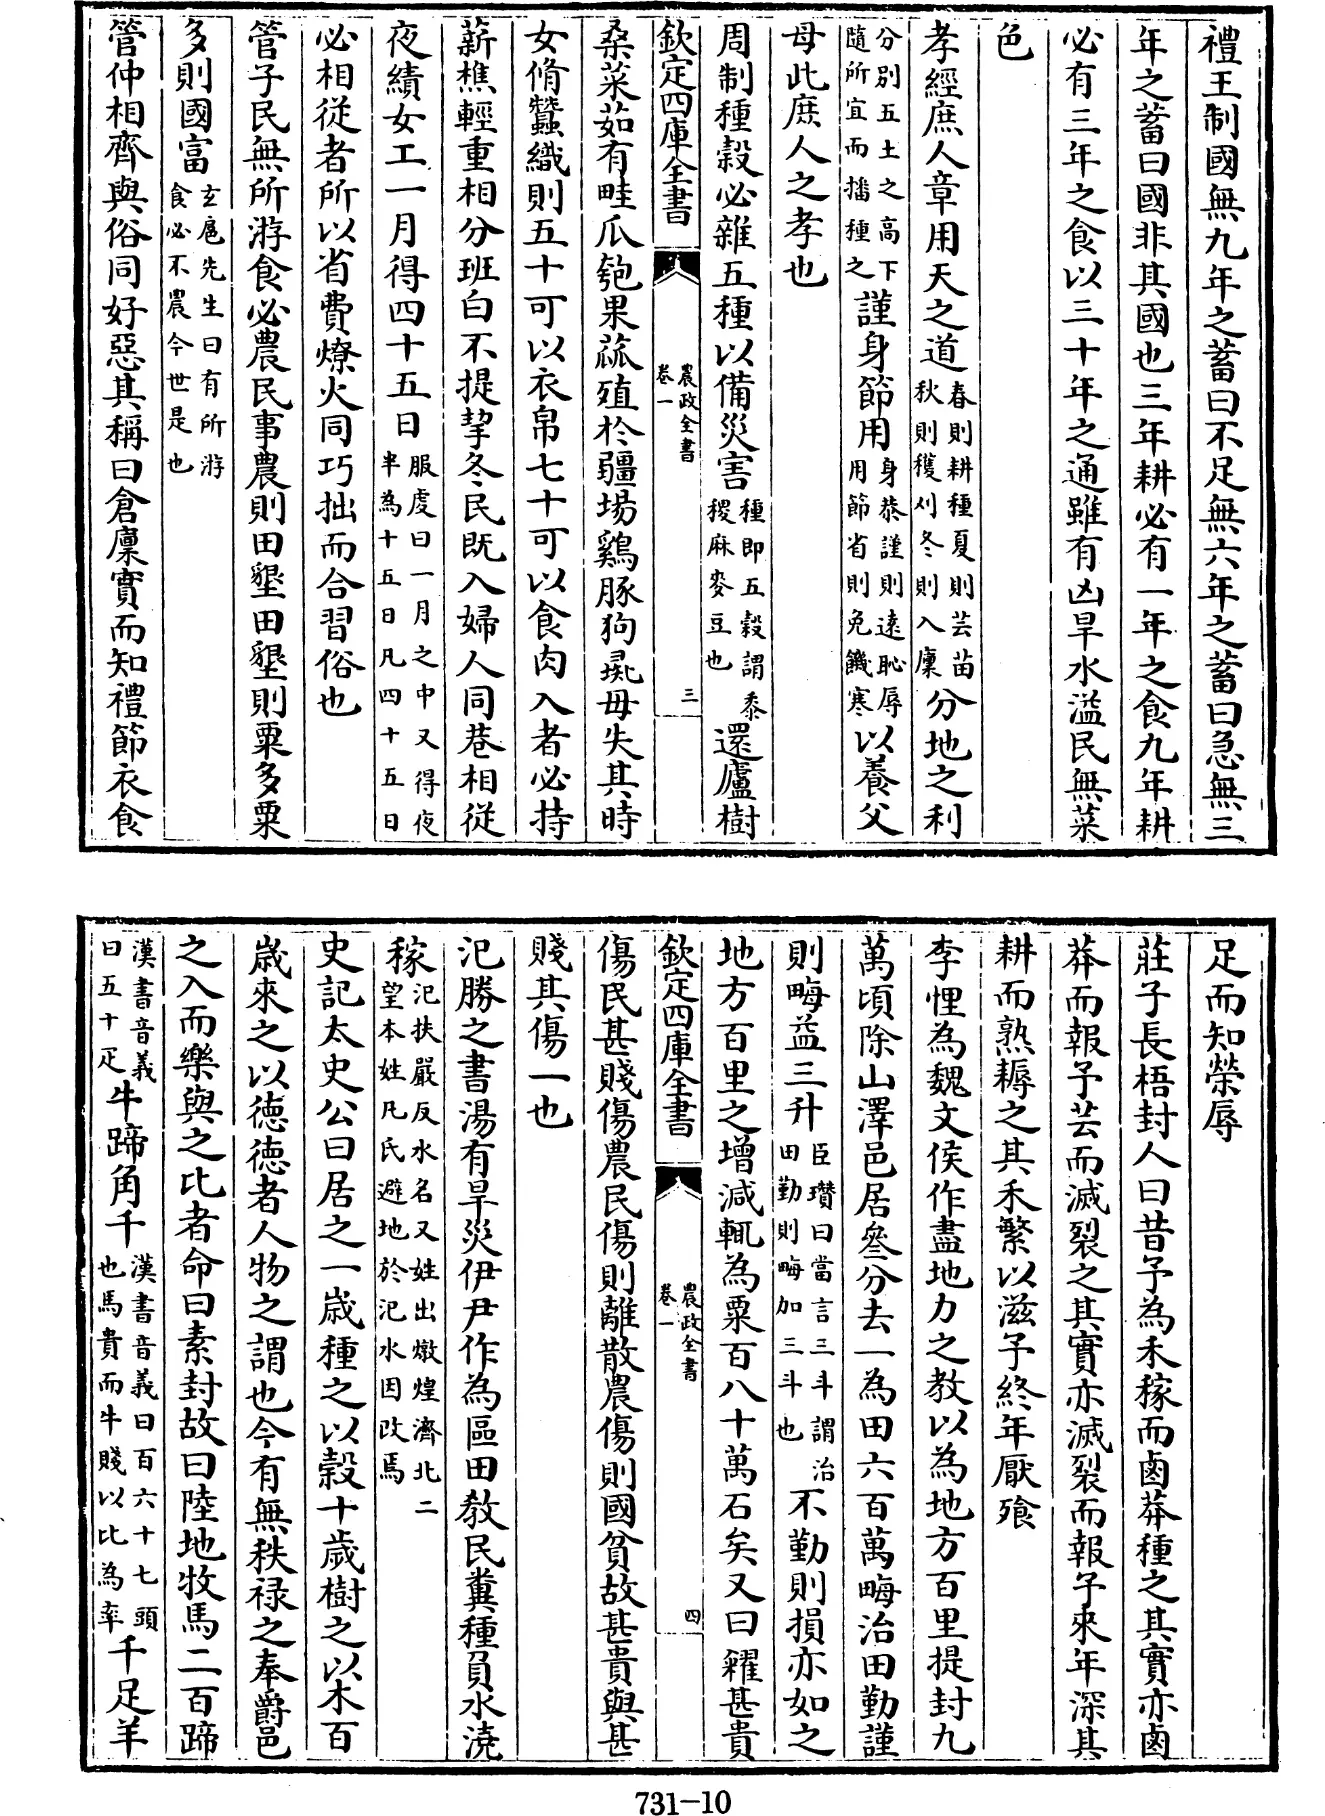 禮王制國無九年之蓄曰不足無六年之蓄曰急無三
年之蓄曰國非其國也三年耕必有一年之食九年耕
必有三年之食以三十年之通雖有凶旱水溢民無菜
色
孝經庶人章用天之道春則耕種夏則芸苗秋則穫刈冬則入廩分地之利
分別五土之高下隨所宜而播種之謹身節用身恭謹則遠恥辱用節省則免饑寒以養父
母此庶人之孝也
周制種穀必雜五種以備災害種即五穀謂黍稷麻麥豆也還廬樹
欽定四庫全書 農政全書卷一 三
桑菜茹有畦瓜匏果蓏殖於疆埸鷄豚狗彘毋失其時
女脩蠶織則五十可以衣帛七十可以食肉入者必持
薪樵輕重相分班白不提挈冬民既入婦人同巷相從
夜績女工一月得四十五日服虔曰一月之中又得夜半為十五日凡四十五日
必相從者所以省費燎火同巧拙而合習俗也
管子民無所游食必農民事農則田墾田墾則粟多粟
多則國富玄扈先生曰有所游食必不農今世是也
管仲相齊與俗同好惡其稱曰倉廩實而知禮節衣食
足而知榮辱
莊子長梧封人曰昔予為禾稼而鹵莽種之其實亦鹵
莽而報予芸而滅裂之其實亦滅裂而報予來年深其
耕而熟耨之其禾繁以滋予終年厭飱
李悝為魏文侯作盡地力之教以為地方百里提封九
萬頃除山澤邑居叄分去一為田六百萬畮治田勤謹
則畮益三升臣瓚曰當言三斗謂治田勤則畮加三斗也不勤則損亦如之
地方百里之增減輒為粟百八十萬石矣又曰糴甚貴
欽定四庫全書 農政全書卷一 四
傷民甚賤傷農民傷則離散農傷則國貧故甚貴與甚
賤其傷一也
氾勝之書湯有旱災伊尹作為區田敎民糞種負水澆
稼氾扶嚴反水名又姓出燉煌濟北二望本姓凡氏避地於氾水因改焉
史記太史公曰居之一歲種之以穀十歲樹之以木百
歲來之以德德者人物之謂也今有無秩祿之奉爵邑
之入而樂與之比者命曰素封故曰陸地牧馬二百蹄
漢書音義曰五十疋牛蹄角千漢書音義曰百六十七頭也馬貴而牛賤以比為率千足羊
731-10